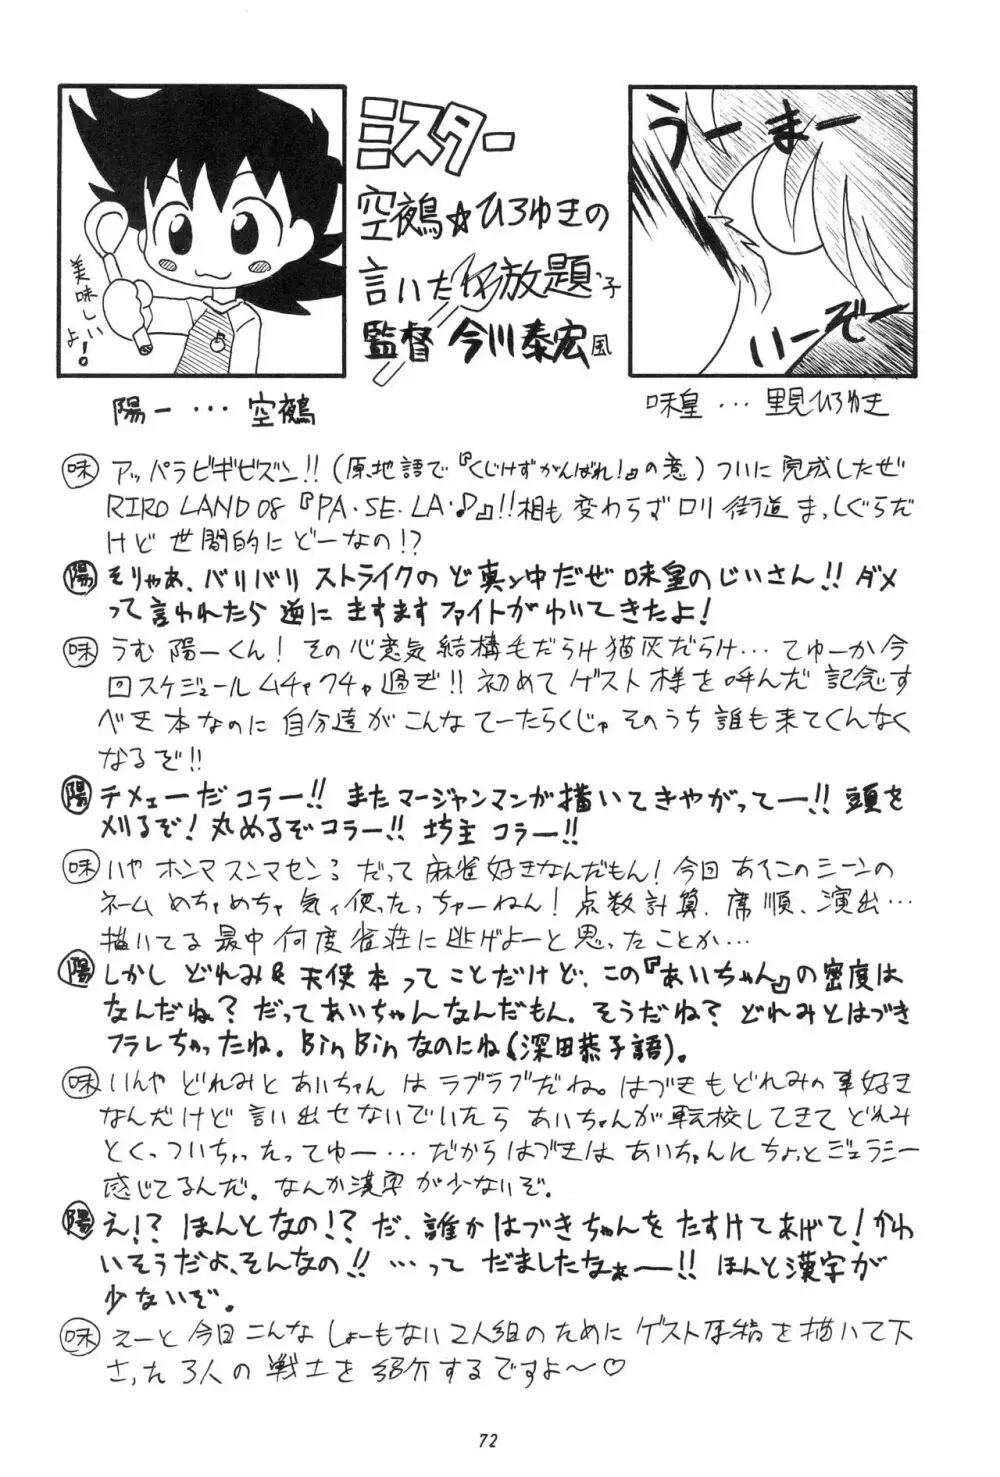 美味しい
よ!
ミスター
空鵺☆ひろゆきの
言いたい放題
監督 今川泰宏風
うーまー
いーぞー
陽一・・・空鵺
味皇・・・里見ひろゆき
味 アッパラビギビズン!!(原地語で『くじけずがんばれ!』の意)ついに完成したぜ
RIRO LAND 08『PA・SE・LA・♪』!!相も変わらずロリ街道まっしぐらだ
けど世間的にどーなの!?
陽 そりゃあ、バリバリストライクのど真ン中だぜ味皇のじいさん!!ダメ
って言われたら逆にますますファイトがわいてきたよ!
味 うむ陽一くん!その心意気結構毛だらけ猫灰だらけ・・・てゆーか今
回スケジュールムチャクチャ過ぎ!!初めてゲスト様を呼んだ記念す
べき本なのに自分達がこんなてーたらくじゃそのうち誰も来てくんなく
なるぞ!!
陽 チメェーだコラー!!またマージャンマンが描いてきやがってー!!頭を
刈るぞ!丸めるぞコラー!!坊主コラー!!
味 いやホンマスンマセンろだって麻雀好きなんだもん!今回あそこのシーンの
ネームめちゃめちゃ気ィ使ったっちゅーねん!点数計算、席順、演出・・・
描いてる最中何度雀荘に逃げよーと思ったことか・・・
陽 しかしどれみ&天使本ってことだけど、この『あいちゃん』の密度は
なんだね?だってあいちゃんなんだもん。そうだね?どれみとはづき
フラレちゃったね。BinBinなのにね(深田恭子語)。
味 いんやどれみとあいちゃんはラブラブだね。はづきもどれみの事好き
なんだけど言い出せないでいたらあいちゃんが転校してきてどれみ
とくっついちゃったってゆー・・・だからはづきはあいちゃんにちょっとジェラシー
感じてるんだ。なんか漢字が少ないぞ。
陽 え!?ほんとなの!?だ、誰かはづきちゃんをたすけてあげて!かわ
いそうだよ、そんなの!!・・・ってだましたなぁー!!ほんと漢字が
少ないぞ。
味 えーと今回こんなしょーもない2人組のためにゲスト原稿を描いて下
さった3人の戦士を紹介するですよ〜♡
72